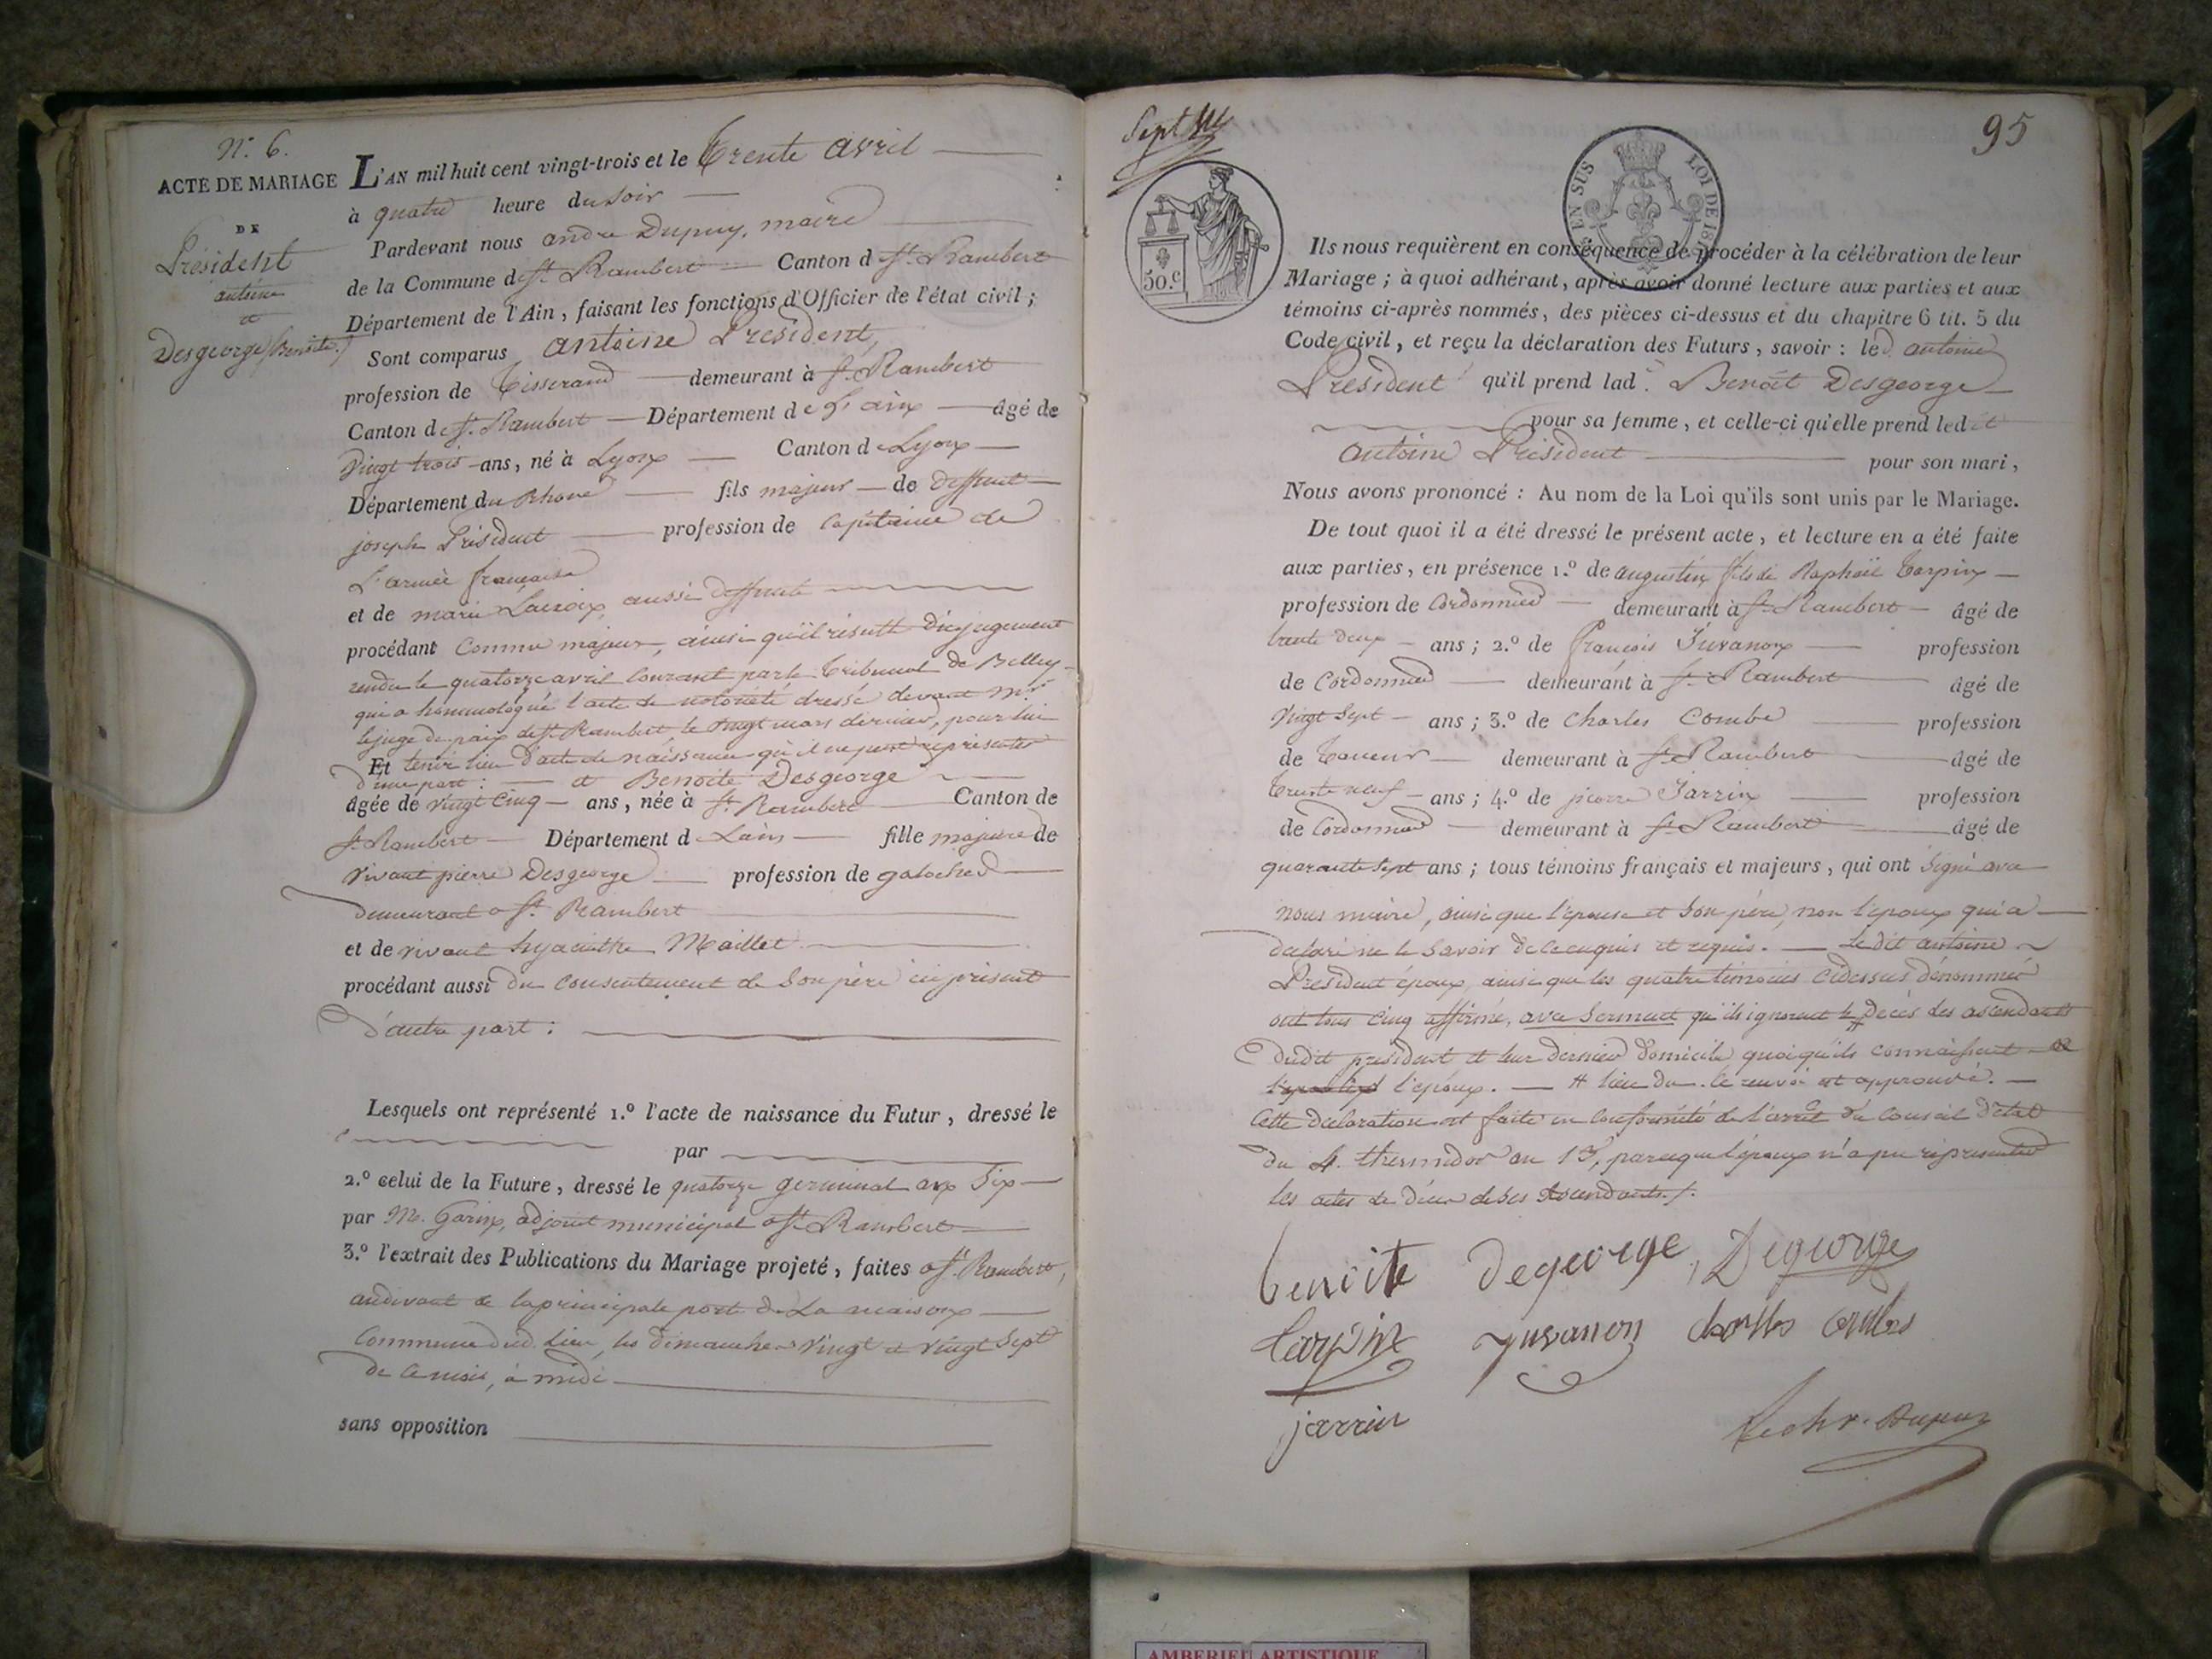 N.° 6.
ACTE DE MARIAGE
DE
Président
antoine
et
Desgeorge (Benoite)
L'AN mil huit cent vingt-trois et le trente avril
à quatre heure du soir
Pardevant nous andré Dupuy, maire
de la Commune d St. Rambert Canton d St. Rambert
Département de l'Ain, faisant les fonctions d'Officier de l'état civil ;
Sont comparus antoine President,
profession de tisserand demeurant à St. Rambert
Canton de St. Rambert Département de L'ain âgé de
vingt trois ans, né à Lyon Canton de Lyon
Département du Rhone fils majeur de deffunt
joseph Président profession de capitaine de
L'armée française
et de marie Lacroix, aussi deffunte
procédant comme majeur, ainsi qu'il resulte d'un jugement
rendu le quatorze avril courant par le tribunal de Belley
qui a hommologué l'acte de notorieté dressé devant mr.
le juge de paix de St. Rambert le vingt mars dernier, pour lui
Et tenir lieu d'acte de naissance qu'il ne peut representer
d'une part : et Benoite Desgeorge
âgée de vingt cinq ans, née à St. Rambert Canton de
St. Rambert Département d Lain fille majeure de
vivant pierre Desgeorge profession de galocher
demeurant a St. Rambert
et de vivant hyacinthe Maillet
procédant aussi du consentement de son père ici présent
d'autre part :
Lesquels ont représenté 1.° l'acte de naissance du Futur, dressé le
par
2.° celui de la Future, dressé le quatorze germinal an six
par M. Garin, adjoint municipal a St. Rambert
3.° l'extrait des Publications du Mariage projeté, faites a St. Rambert,
audevant de la principale porte de La maison
Commune dud. lieu, les dimanches vingt et vingt sept
de ce mois, à midi
sans opposition
95
EN SUS LOI DE 18
50.c
Ils nous requièrent en conséquence de procéder à la célébration de leur
Mariage ; à quoi adhérant, après avoir donné lecture aux parties et aux
témoins ci-après nommés, des pièces ci-dessus et du chapitre 6 tit. 5 du
Code civil, et reçu la déclaration des Futurs, savoir : led. antoine
President qu'il prend lad. Benoit Desgeorge
pour sa femme, et celle-ci qu'elle prend ledit
antoine Président pour son mari,
Nous avons prononcé : Au nom de la Loi qu'ils sont unis par le Mariage.
De tout quoi il a été dressé le présent acte, et lecture en a été faite
aux parties, en présence 1.° de augustin fils de Raphaël Tarpin
profession de Cordonnier demeurant à St. Rambert âgé de
trente deux ans ; 2.° de françois Juvanon profession
de Cordonnier demeurant à St. Rambert âgé de
vingt sept ans ; 3.° de Charles Combe profession
de taneur demeurant à St. Rambert âgé de
trente neuf ans ; 4.° de pierre Jarrin profession
de Cordonnier demeurant à St. Rambert âgé de
quarante sept ans ; tous témoins français et majeurs, qui ont signé avec
nous maire, ainsi que l'epouse et son père, non l'epoux qui a
declaré ne le savoir de ce enquis et requis. Le dit antoine
President époux, ainsi que les quatre temoins cidessus dénommés
ont tous cinq affirmé, avec serment qu'ils ignorent le # Décès des ascendants
dudit president et leur dernier domicile quoiqu'ils connaissent
l'epoux. # lieu du. le renvoi est approuvé.
Cette declaration est faite en conformité de l'arrêt du Conseil d'etat
du 4. thermidor an 13, parceque l'époux n'a pu representer
les actes de décès de ses ascendants./.
benoite degeorge, Degeorge
tarpin juvanon charles combes
jarrin
Dupuy
AMBERIEU ARTISTIQUE